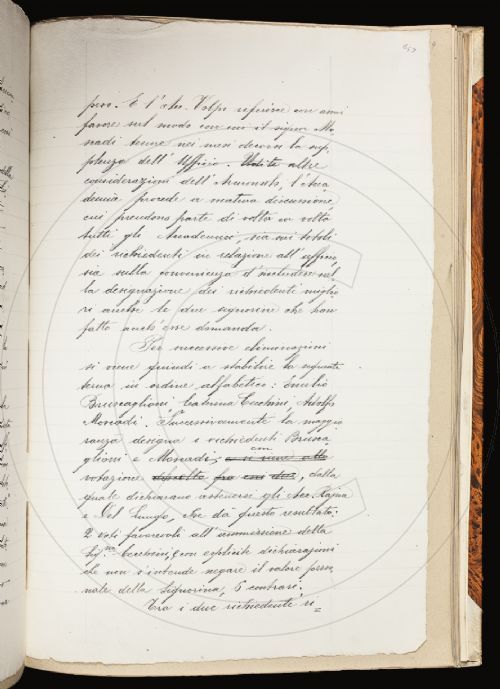 però. E l'Arc. Volpi riferisce con assai
favore sul modo con cui il signor Mo-
nadi tenne nei mesi decorsi la sup-
plenza dell'Ufficio. Udite altre
considerazioni dell'Arciconsolo, l'Acca-
demia procede a matura discussione,
cui prendono parte di volta in volta
tutti gli Accademici, sia sui titoli
dei richiedenti in relazione all'ufficio,
sia sulla convenienza d'includere nel-
la designazione dei richiedenti miglio-
ri anche le due signorine che han
fatto anch'esse domanda.
Per successive eliminazioni
si viene quindi a stabilire la seguente
terna in ordine alfabetico: Emilio
Brusaglioni Caterina Cecchini, Adolfo
Morsadi. Successivamente la maggio-
ranza designa i richiedenti Brusa-
glioni e Morsadi; e si viene alla
con
votazione fra due, dalla
quale dichiarano astenersi gli Acc. Rajna
e Del Lungo, che dà questo resultato:
2 voti favorevoli all'ammissione della
Sig.na Cecchini, con esplicite dichiarazioni
che non s'intende negare il valore perso-
nale della Signorina, 6 contrari.
Tra i due richiedenti ri=